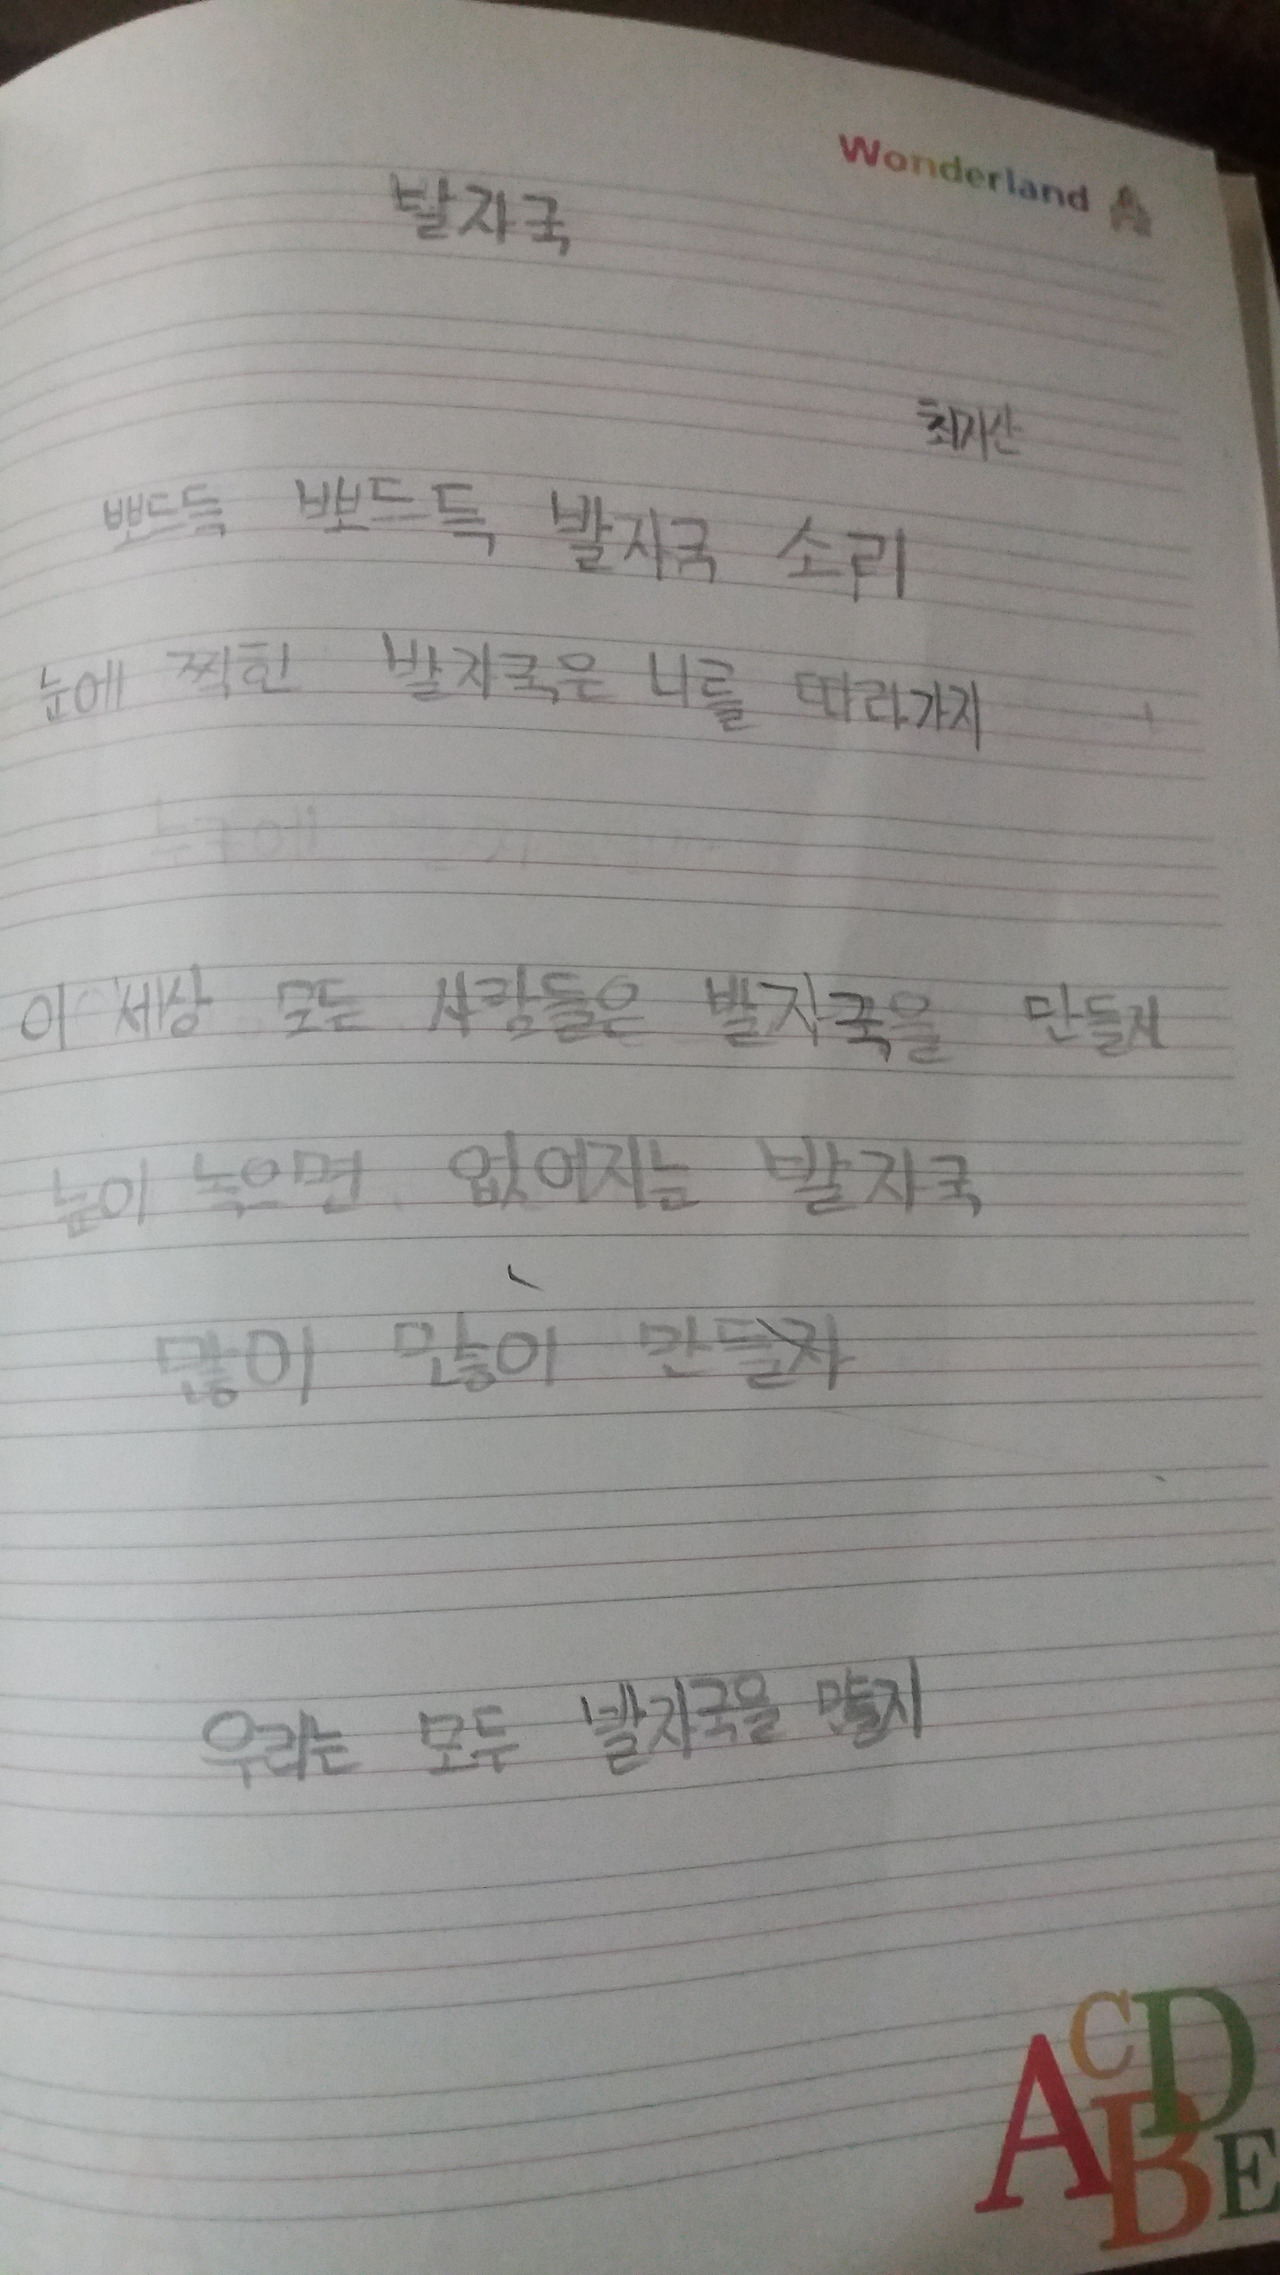 Wonderland
발자국
최지산
뽀드득 뽀드득 발자국 소리
눈에 찍힌 발자국은 나를 따라가지
이 세상 모든 사람들은 발자국을 만들지
눈이 녹으면 없어지는 발자국
많이 많이 만들자
우리는 모두 발자국을 만들지
A B C D E